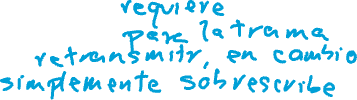 requiere
para la trama
retransmitr, en cambio
simplemente sobrescribe